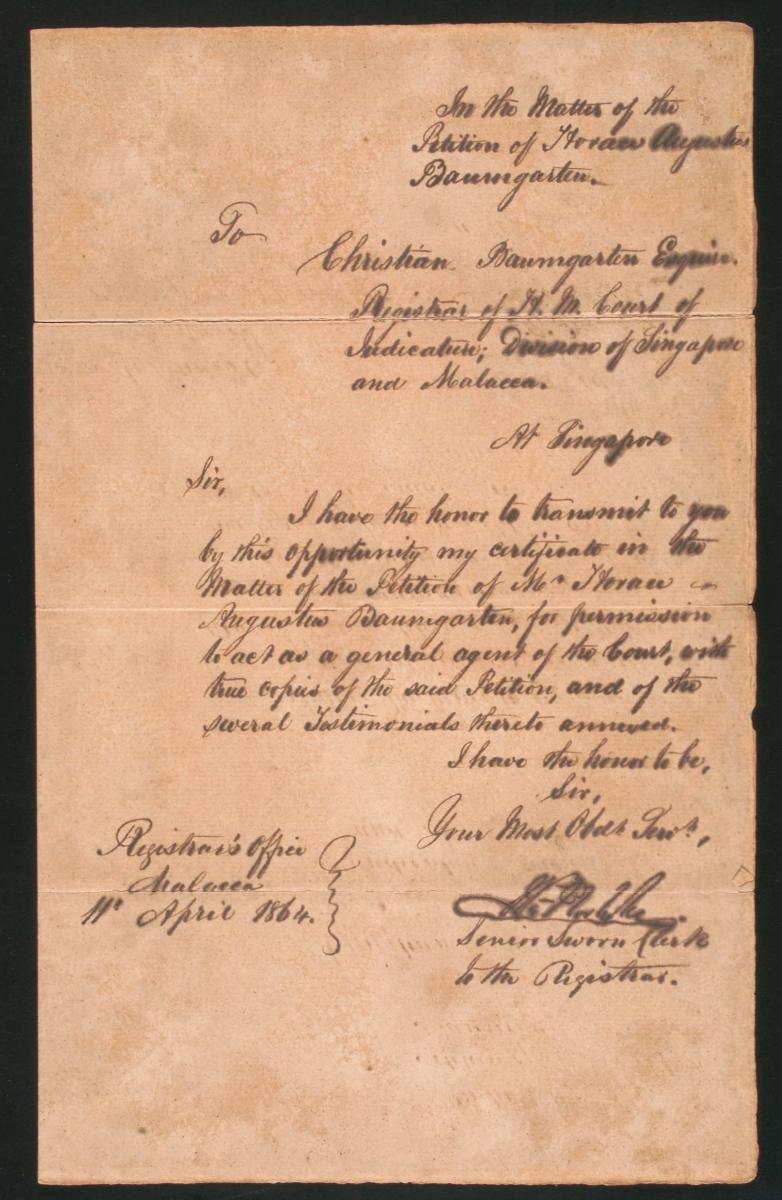 In the Matter of the
Petition of Horace Augustus
Baumgarten.
To
Christian Baumgarten Esquire.
Registrar of H. M. Court of
Judicature; Division of Singapore
and Malacca.
At Singapore
Sir,
I have the honor to transmit to you
by this opportunity my certificate in the
Matter of the Petition of Mr Horace
Augustus Baumgarten, for permission
to act as a general agent of the Court, with
true copies of the said Petition, and of the
several Testimonials thereto annexed.
I have the honor to be,
Sir,
Your Most Obdt Servt,
Registrar's Office
Malacca
11th April 1864.
Senior Sworn Clerk
to the Registrar.